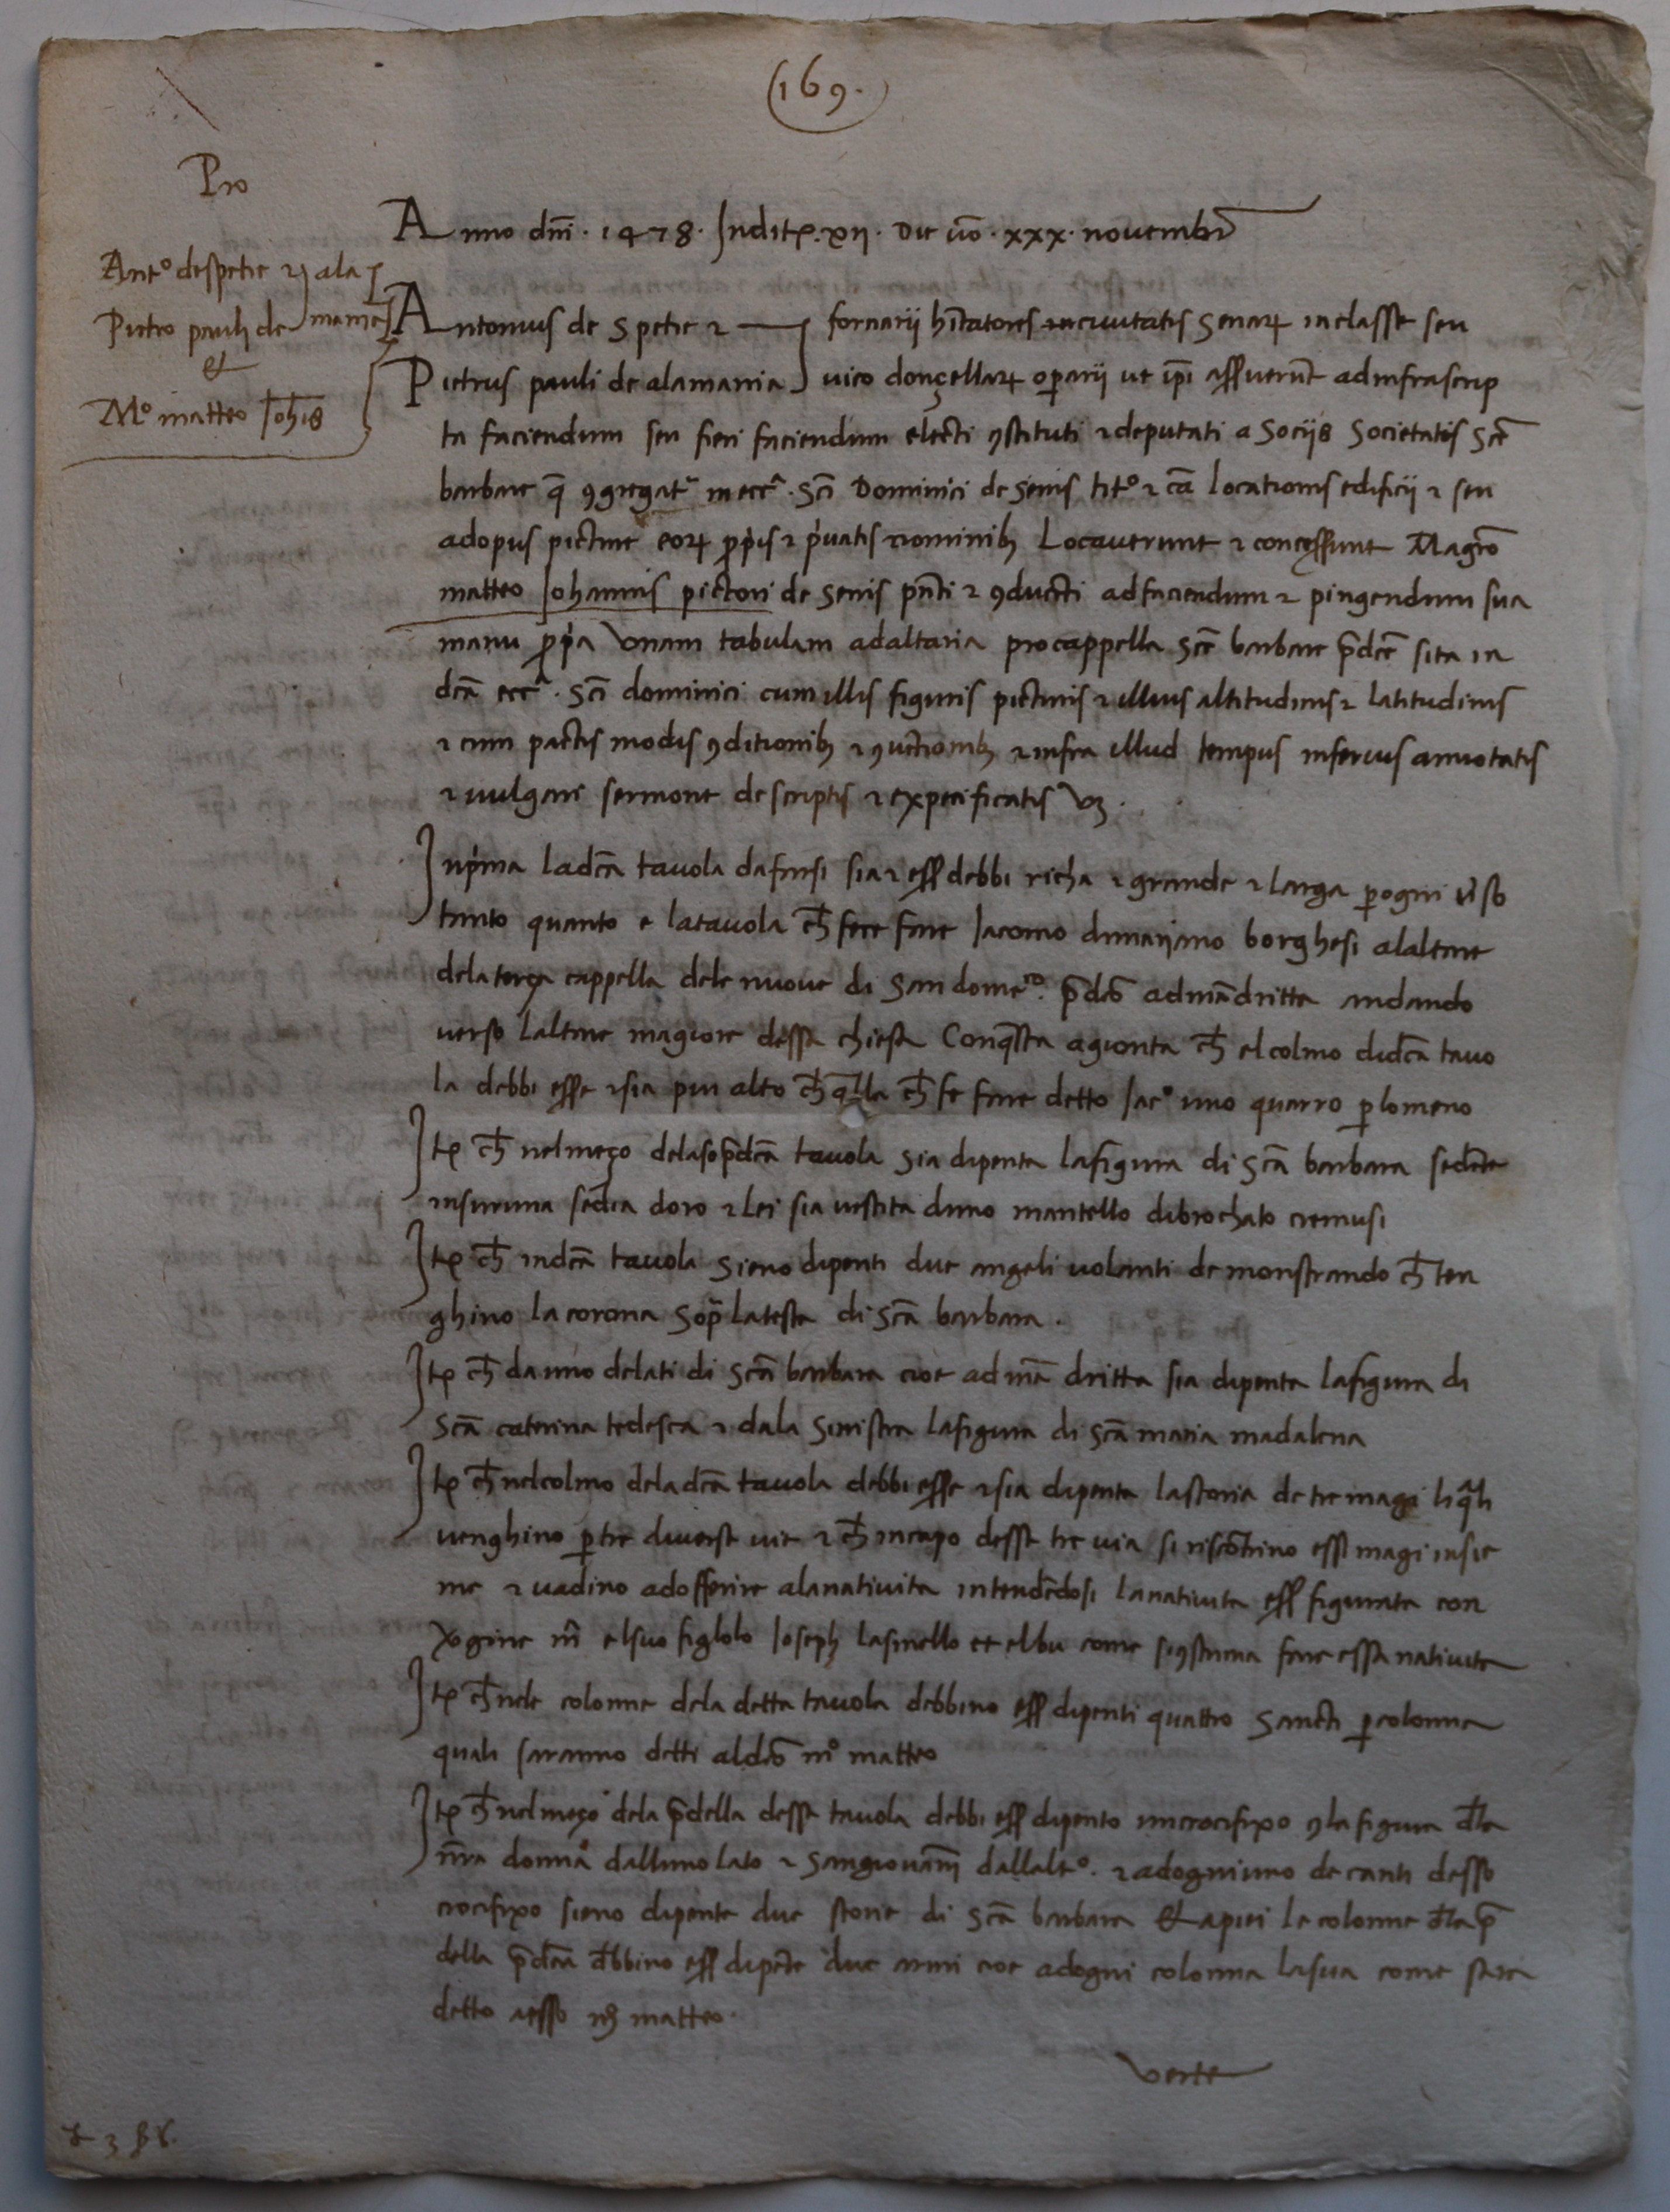 (169.)
Pro
Antº de spetie ⁊ ala
Pietro pauli de mania
et
Mº matteo Joħis
Anno dñi · 1478 · Inditẹ. xii · Die ṽo · xxx · novembr̃
Antonius de Spetie ⁊ fornarii hĩtatores in civitatis Senaꝝ in classe seu
Pietrus pauli de alamania vico donçellaꝝ oꝑarii ut ip̃i assuerũt ad infrascrip
ta faciendum seu fieri faciendum electi ꝯstituti ⁊ deputati a Sociis Societatis Scẽ
barbare q̃ ꝯgregatr̃ in eccã · Sc̃i Dominici de Senis titº ⁊ cã locationis edificii ⁊ seu
ad opus picture eoꝝ ꝓpiis ⁊ p̃vatis nominibꝫ Locaverunt ⁊ concessunt Magr̃o
matteo Johannis pictori de Senis pñti ⁊ ꝯducẽti ad faciendum ⁊ pingendum sua
manu ꝓp̃a Unam tabulam ad altaria pro cappella Scẽ barbare p̃dcẽ sita in
dcã eccã · Sc̃i dominici cum illis figuris picturis ⁊ illius altitudinis ⁊ latitudinis
⁊ cum pactis modis ꝯditionibꝫ ⁊ ꝯvẽtionibꝫ ⁊ infra illud tempus inferius annotatis
⁊ vulgari sermone descriptis ⁊ expecificatis vꝫ ·
In p̃ma la dcã tavola da farsi sia ⁊ ess̃ debbi richa ⁊ grande ⁊ larga ꝑ ogni ṽso
tanto quanto e la tavola cħ fece fare Jacomo di mariano borghesi alaltare
dela terça cappella dele nuove di San domeco. p̃dcõ ad mã dritta andando
verso laltare magiore dessa chiesa Con q̃sta agionta cħ el colmo di dcã tavo
la debbi esse ⁊ sia piu alto cħ q̃lla cħ fe fare detto Jacº uno quarro ꝑ lo meno
Itẹ cħ nel meço dela sop̃dcã tavola sia dipenta la figura di Scã barbara sedẽte
in su una sedia doro ⁊ lei sia vestita duno mantello di brochato cremusi
Itẹ cħ in dcã tavola sieno dipenti due angeli volanti demonstrando cħ ten
ghino la corona sop̃ la testa di Scã barbara ·
Itẹ cħ da uno de lati di Scã barbara cioe ad mã dritta sia dipenta la figura di
Scã caterina tedesca ⁊ dala sinistra la figura di Scã maria madalena
Itẹ cħ nel colmo dela dcã tavola debbi esse ⁊ sia dipenta la storia de tre magi li q̃li
venghino ꝑ tre diverse vie ⁊ cħ in capo desse tre via si riscõtrino essi magi insie
me ⁊ vadino ad offerire ala natività intendẽdosi la natività ess̃ figurata con
Vogine m̃ el suo figlolo Joseph lasinello et el bu come si ꝯstuma fare essa natività
Itẹ cħ nele colonne dela detta tavola debbino ess̃ dipenti quattro Sancti ꝑ colonna
quali saranno detti al dcõ mº matteo
Itẹ cħ nel meço dela p̃della dessa tavola debbi ess̃ dipento un crocifixo ꝯ la figura đla
nr̃a donna dalluno lato ⁊ San giovanĩ dallaltº. ⁊ ad ogniuno de canti desso
crocifixo sieno dipente due storie di Scã barbara Et a piei le colonne đla p̃
della p̃dcã đbbino ess̃ dipẽte due armi cioe ad ogni colonna la sua come sara
detto a esso mº matteo ·
verte